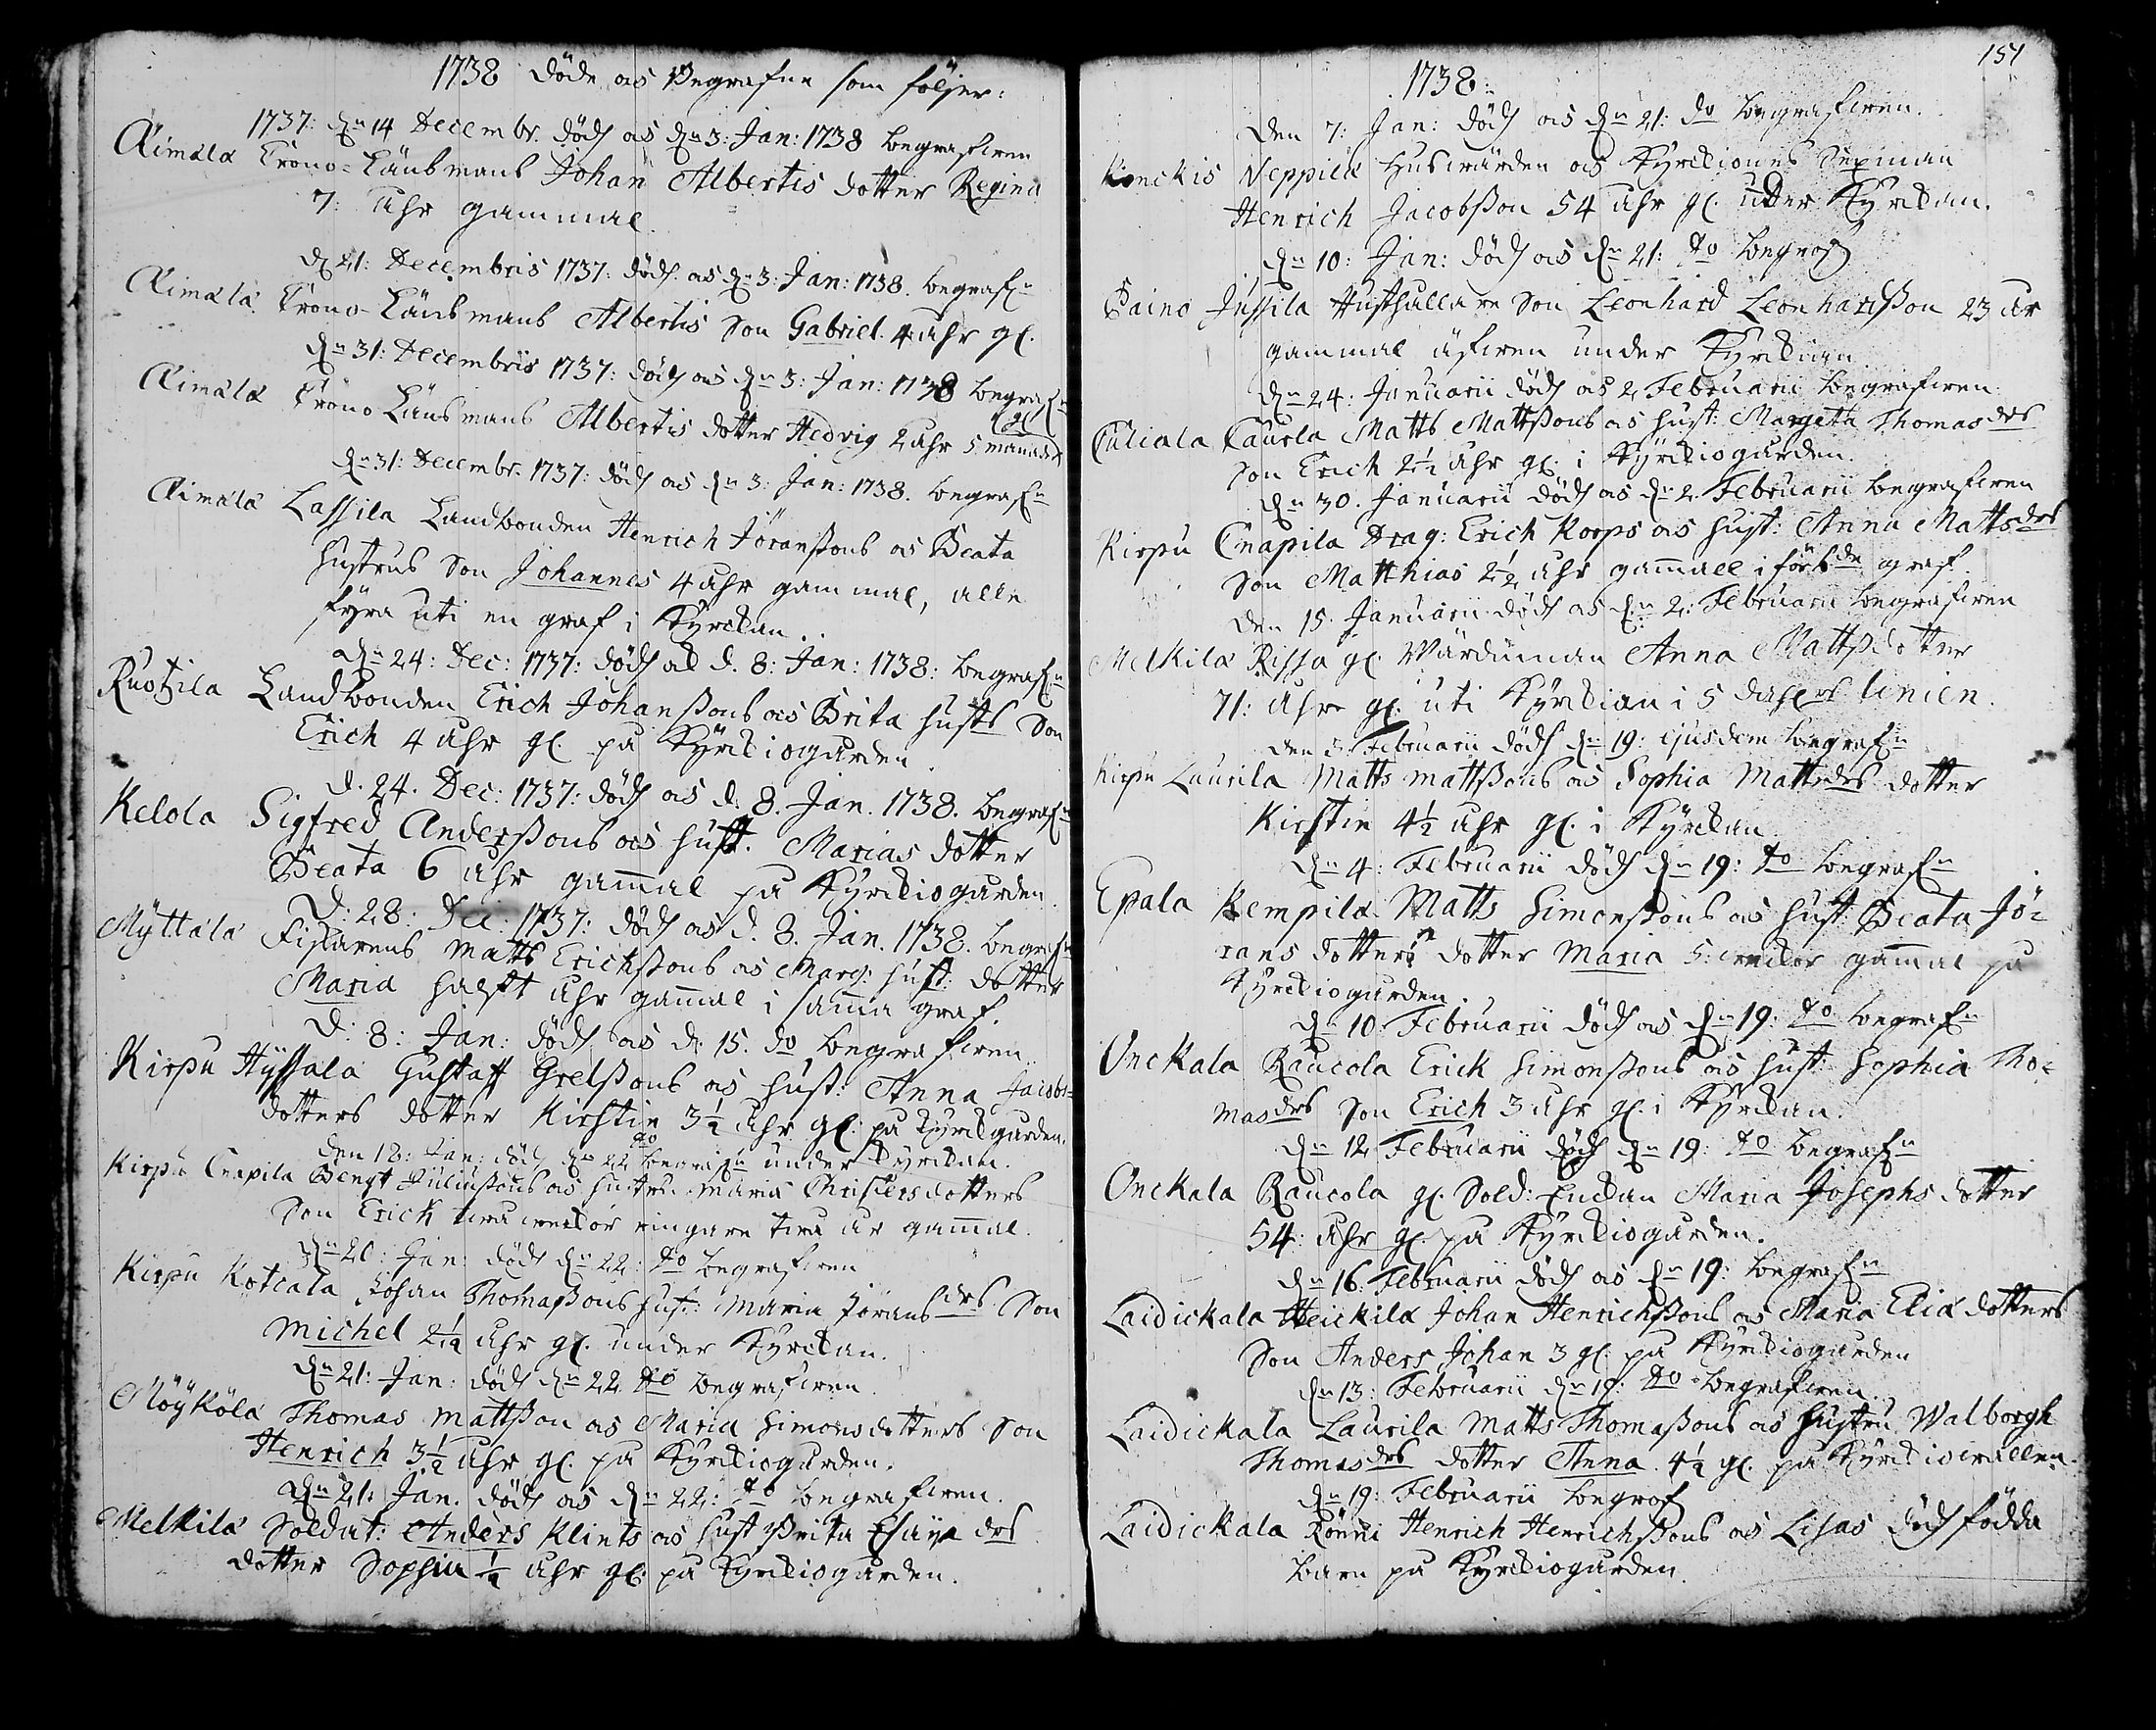 1738 döde och Begrafne som följer:
1737: d:n 14 Decembr. död och d:n 3: Jan: 1738 begrafwen
Äimälä Crono-Länsmans Johan Albertis dotter Regina
7: åhr gammal.
d. 21: Decembris 1737: död och d:n 3: Jan: 1738. begrafn
Äimälä Crono-Länsmans Albertis Son Gabriel 4 åhr gl.
d:n 31: Decembris 1737: död och d:n 3: Jan: 1738 begrafn
Äimälä Crono Länsmans Albertis dotter Hedvig 2 åhr 5 månad gl
d:n 31: Decembr. 1737: död och d:n 3: Jan: 1738. begrafn
Äimälä Lassila Landbonden Henrich Jöranßons och Beata
hustrus Son Johannes 4 åhr gammal, alle
fyra uti en graf i Kyrckan.
d:n 24: Dec: 1737: död och d. 8: Jan: 1738: begrafn
Ruotzila Landbonden Erich Johanßons och Brita husts Son
Erich 4 åhr gl. på Kyrckiogården.
d. 24. Dec: 1737: död och d. 8. Jan. 1738. begrafn
Kelola Sigfred Anderßons och hust. Marias dotter
Beata 6 åhr gam̄al på Kyrckiogården.
D: 28: Dec: 1737: död och d. 8. Jan. 1738. begrafn
Myttälä Fiskarens Matts Erichßons och Marg: hust: dotter
Maria halft åhr gam̄al i sam̄a graf.
D: 8: Jan: död och d. 15. do begrafwen.
Kirpu Hyssälä Gustaff Grelsßons och hust: Anna Jacobs-
dotters dotter Kirstin 3½ åhr gl. på Kyrckgården.
den 18: Jan: död d:n 22 do begrafn under Kyrckan.
Kirpu Cnapila Bengt Juliußons och hustru Maria Christersdotters
Son Erich twå weckor ringare twå år gam̄al.
d:n 20: Jan: död d:n 22: do begrafwen
Kirpu Kotcala Johan Thomaßons hust: Maria Jörans drs Son
Michel 2½ åhr gl. under Kyrckan.
d:n 21: Jan: död d:n 22 do begrafwen.
Möyköla Thomas Mattßon och Maria Simonsdotters Son
Henrich 3½ åhr gl. på Kyrckiogården.
d:n 21: Jan. död och d:n 22: do begrafwen.
Melkilä Soldat: Anders Klints och hust Brita Esaiæ drs
dotter Sophia ¼ åhr gl. på Kyrckiogården.
157
1738:
Den 7: Jan: död och d:n 21: do begrafwen.
Konckis Neppilä Huswärden och Kyrckiones Sexman
Henrich Jacobßon 54 åhr gl. under Kyrckan.
d:n 10: Jan: död och d:n 21: do begrof
Paino Jussila Husthållare Son Leonhard Leonhardßon 23 år
gammal äfwen under Kyrckian
d:n 24: Januarii död och 2 Februarii begrafwen.
Culiala Caurla Matts Mattßons och hust: Margeta Thomas drs
Son Erich 2½ åhr gl. i Kyrckiogården.
d:n 30. Januarii död och d:n 2. Februarii begrafwen
Kirpu Cnapila Drag: Erich Korps och hust: Anna Matts drs
Son Matthias 2½ åhr gam̄all i förb:de graf.
Den 15. Januarii död och d:n 2: Februarii begrafwen
Melkilä Rissa gl. Wärduman Anna Mattßdotter
71: åhr gl. uti Kyrckian i 5 dahlrs linien.
den 3. Februarii död d:n 19: ejusdem begrafn
Kirpu Laurila Matts Mattßons och Sophia Matts drs dotter
Kirstin 4½ åhr gl. i Kyrckan
d:n 4: Februarii död d:n 19: do begrafn
Epala Kempilä Matts Simonßons och hust: Beata Jö-
rans dotters dotter Maria 5: weckor gam̄al på
Kyrckiogården.
d:n 10: Februarii död och d:n 19: do begrafn
Onckala Raucola Erick Simonßons och hust: Sophia Tho-
mas drs Son Erich 3 åhr gl. i Kyrckan.
d:n 12 Februarii död d:n 19: do begrafn
Onckala Raucola gl. Sold: Enckan Maria Josephs dotter
54: åhr gl. på Kyrckiogården.
d:n 16. Februarii död och d:n 19: begrafn
Laidickala Heickilä Johan Henrichßons och Maria Eliæ dotters
Son Anders Johan 3 gl. på Kyrckiogården
d:n 13: Februarii d:n 19: do begrafwen.
Laidickala Laurila Matts Thomaßons och hustru Walborgh
Thomas drs dotter Anna 4½ gl. på Kyrckiowallen.
d:n 19: Februarii begrof
Laidickala Rönni Henrich Henrichßons och Lisas dödfödda
barn på Kyrckiogården.